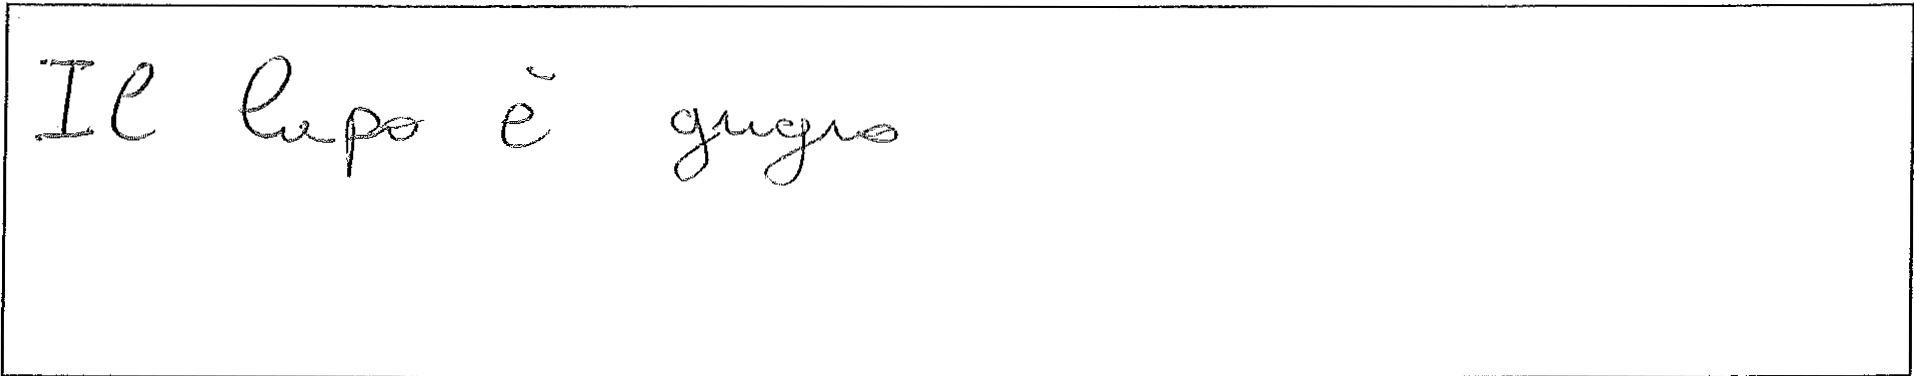 Il lupo è grigio